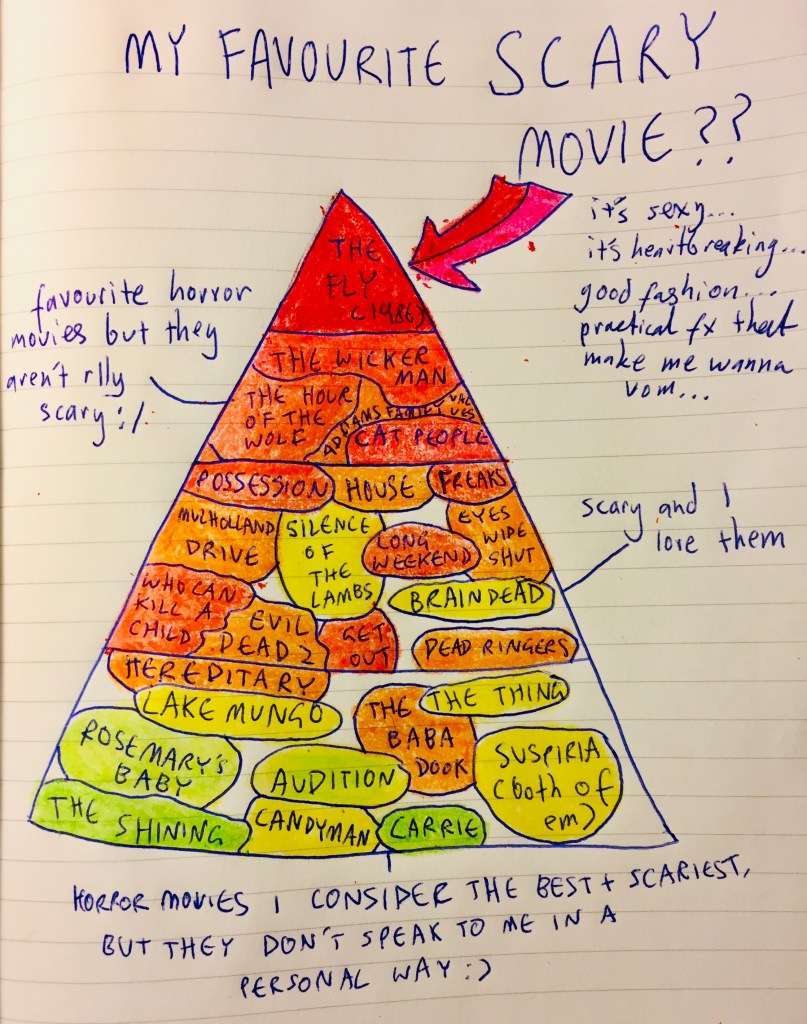 MY FAVOURITE SCARY
MOVIE??
it's sexy...
it's heartbreaking...
good fashion...
practical fx that
make me wanna
vom...
THE
FLY
(1986)
favourite horror
movies but they
aren't rlly
scary :/
THE WICKER
MAN
THE HOUR
OF THE
WOLF
ADDAMS FAMILY VAL
UES
CAT PEOPLE
POSSESSION
HOUSE
FREAKS
MULHOLLAND
DRIVE
SILENCE
OF
THE
LAMBS
LONG
WEEKEND
EYES
WIDE
SHUT
scary and I
love them
WHO CAN
KILL A
CHILD
EVIL
DEAD 2
GET
OUT
BRAINDEAD
DEAD RINGERS
HEREDITARY
LAKE MUNGO
THE
BABA
DOOK
THE THING
ROSEMARY'S
BABY
AUDITION
SUSPIRIA
(both of
em)
THE SHINING
CANDYMAN
CARRIE
HORROR MOVIES I CONSIDER THE BEST + SCARIEST,
BUT THEY DON'T SPEAK TO ME IN A
PERSONAL WAY :)